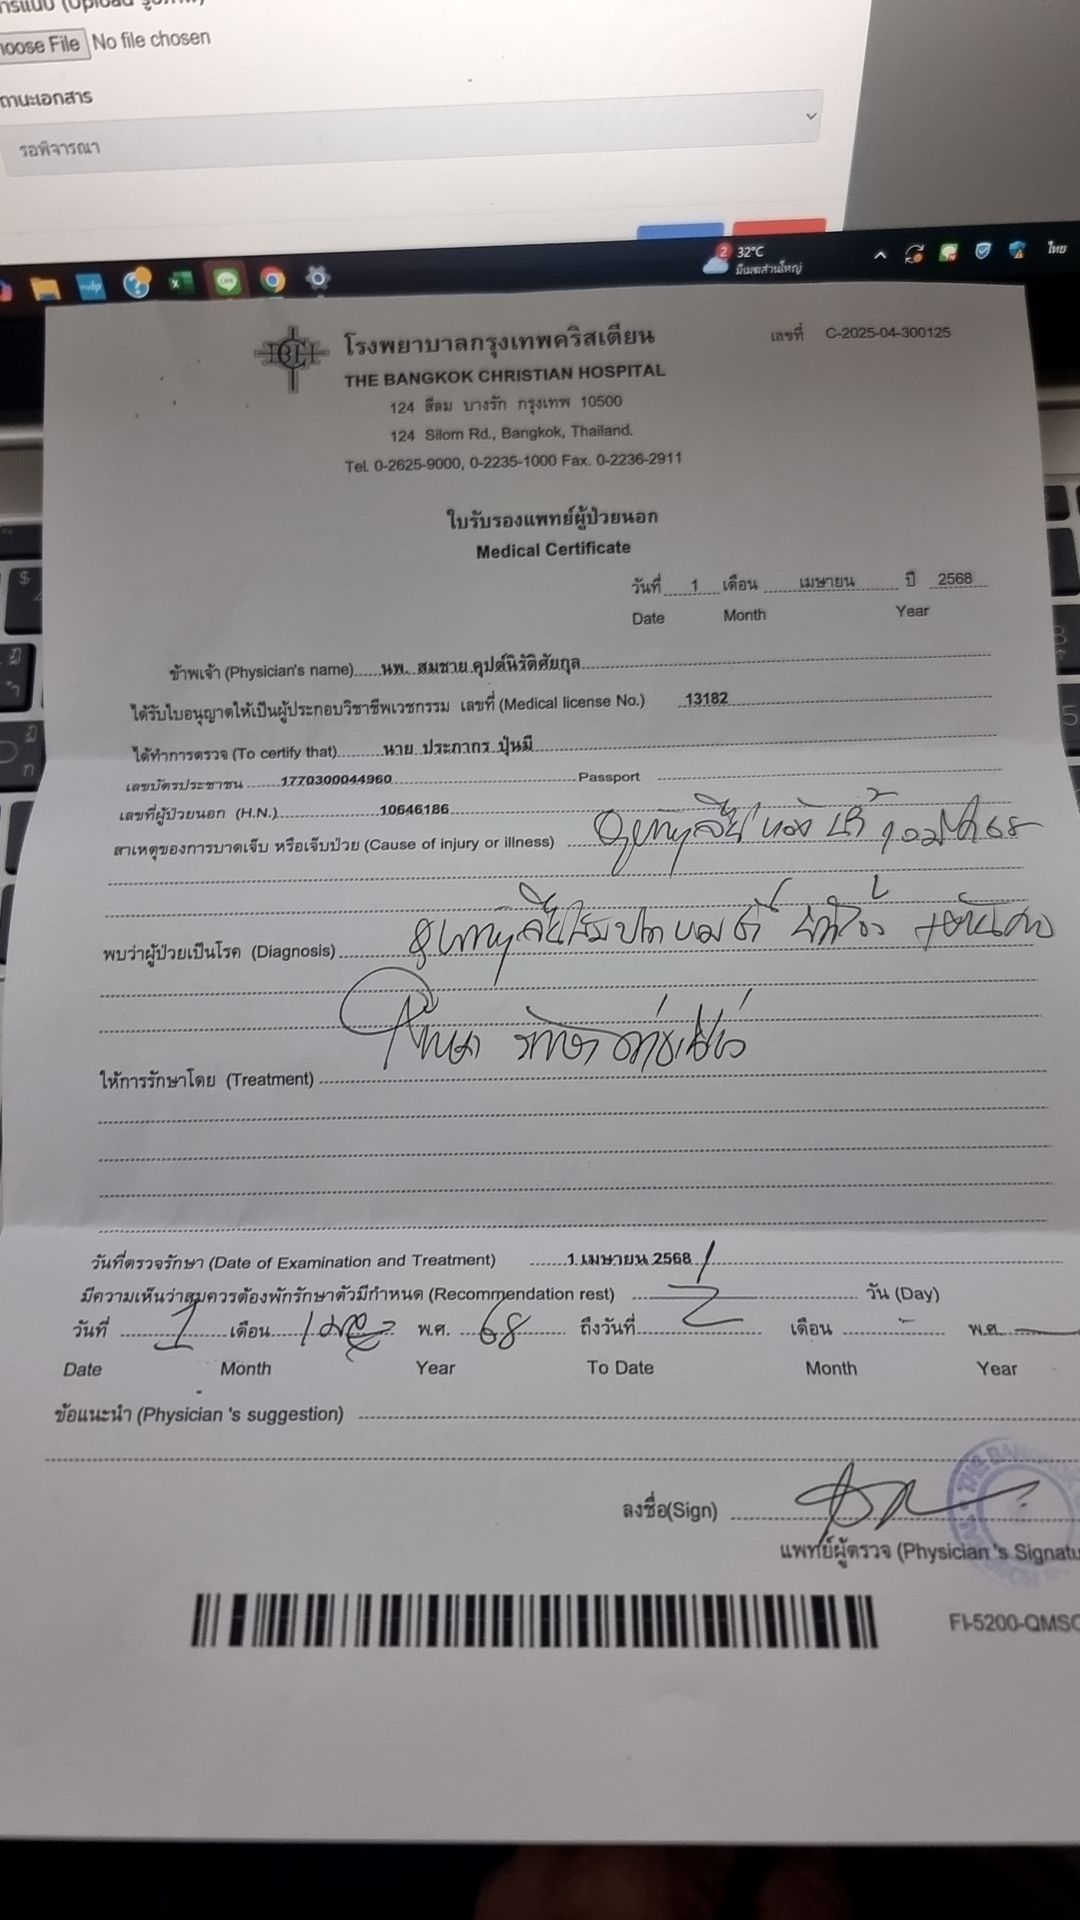 No file chosen
รอพิจารณา
2
32°C
มีเมฆส่วนใหญ่
ไทย
โรงพยาบาลกรุงเทพคริสเตียน
เลขที่ C-2025-04-300125
THE BANGKOK CHRISTIAN HOSPITAL
124 สีลม บางรัก กรุงเทพ 10500
124 Silom Rd., Bangkok, Thailand.
Tel. 0-2625-9000, 0-2235-1000 Fax. 0-2236-2911
ใบรับรองแพทย์ผู้ป่วยนอก
Medical Certificate
วันที่ 1 เดือน เมษายน ปี 2568
Date Month Year
ข้าพเจ้า (Physician's name) นพ. สมชาย คุปต์นิรัติศัยกุล
ได้รับใบอนุญาตให้เป็นผู้ประกอบวิชาชีพเวชกรรม เลขที่ (Medical license No.) 13182
ได้ทำการตรวจ (To certify that) นาย ประภากร ปุ่นมี
เลขบัตรประชาชน 1770300044960 Passport
เลขที่ผู้ป่วยนอก (H.N.) 10646186
สาเหตุของการบาดเจ็บ หรือเจ็บป่วย (Cause of injury or illness)
พบว่าผู้ป่วยเป็นโรค (Diagnosis)
ให้การรักษาโดย (Treatment)
วันที่ตรวจรักษา (Date of Examination and Treatment) 1 เมษายน 2568
มีความเห็นว่าสมควรต้องพักรักษาตัวมีกำหนด (Recommendation rest) วัน (Day)
วันที่ 1 เดือน พ.ศ. 68 ถึงวันที่ เดือน พ.ศ.
Date Month Year To Date Month Year
ข้อแนะนำ (Physician 's suggestion)
ลงชื่อ(Sign)
แพทย์ผู้ตรวจ (Physician 's Signatu
FI-5200-QMSC